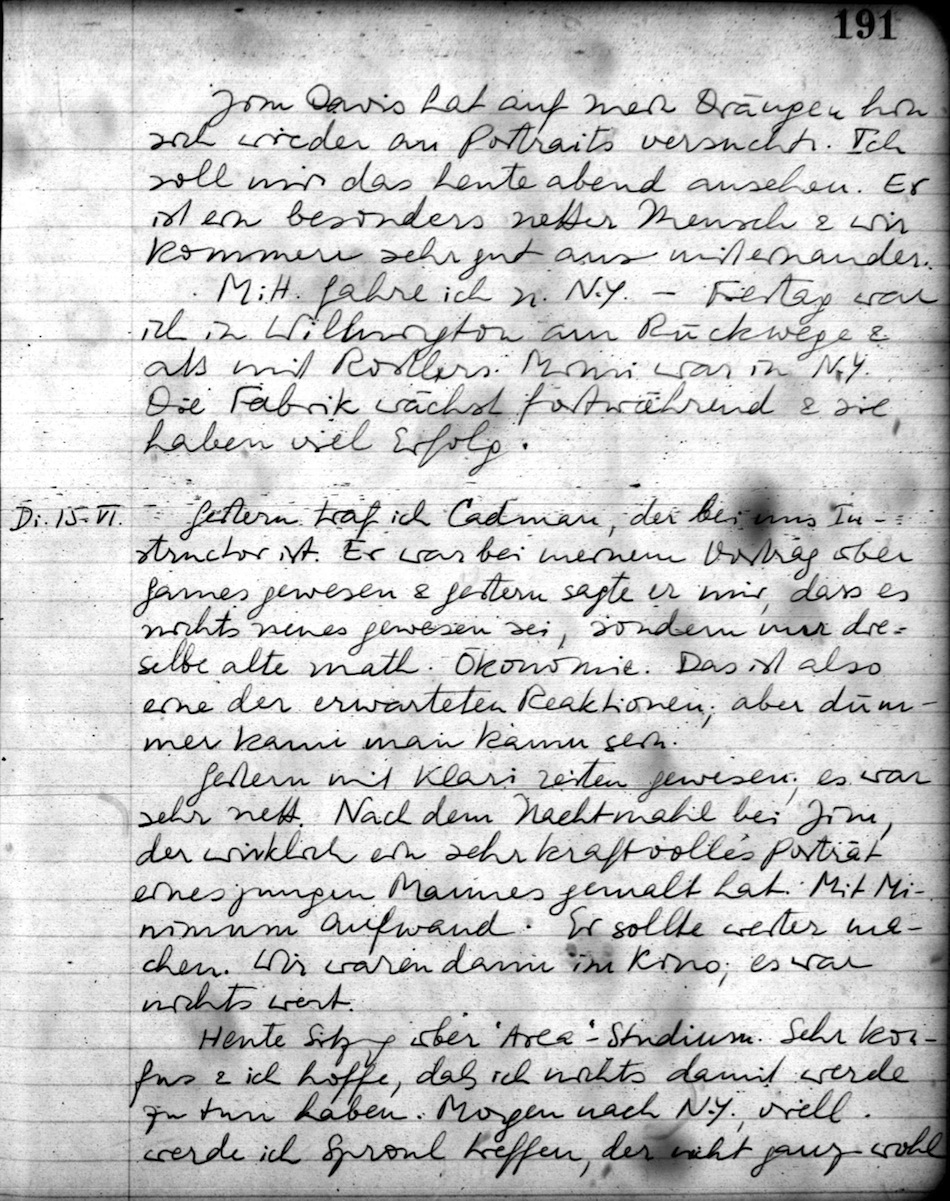 191
Jim Davis hat auf mein Drängen hin
sich wieder an Portraits versucht. Ich
soll mir das heute abend ansehen. Er
ist ein besonders netter Mensch & wir
kommen sehr gut aus miteinander.
Mitt. fahre ich n. N.Y. – Freitag war
ich in Wilmington am Rückwege &
aß mit Roesslers. Mimi war in N.Y.
Die Fabrik wächst fortwährend & sie
haben viel Erfolg.
Di. 15. VI. Gestern traf ich Cadman, der bei uns In-
structor ist. Er war bei meinem Vortrag über
games gewesen & gestern sagte er mir, dass es
nichts neues gewesen sei, sondern nur die=
selbe alte math. Ökonomie. Das ist also
eine der erwarteten Reaktionen; aber düm-
mer kann man kaum sein.
Gestern mit Klari reiten gewesen; es war
sehr nett. Nach dem Nachtmahl bei Jim,
der wirklich ein sehr kraftvolles Porträt
eines jungen Mannes gemalt hat. Mit Mi-
nimum Aufwand. Er sollte weiter ma-
chen. Wir waren dann im Kino; es war
nichts wert.
Heute Sitzg über 'Area'-Studium. Sehr kon-
fus & ich hoffe, daß ich nichts damit werde
zu tun haben. Morgen nach N.Y., viell.
werde ich Sproul treffen, der nicht ganz wohl